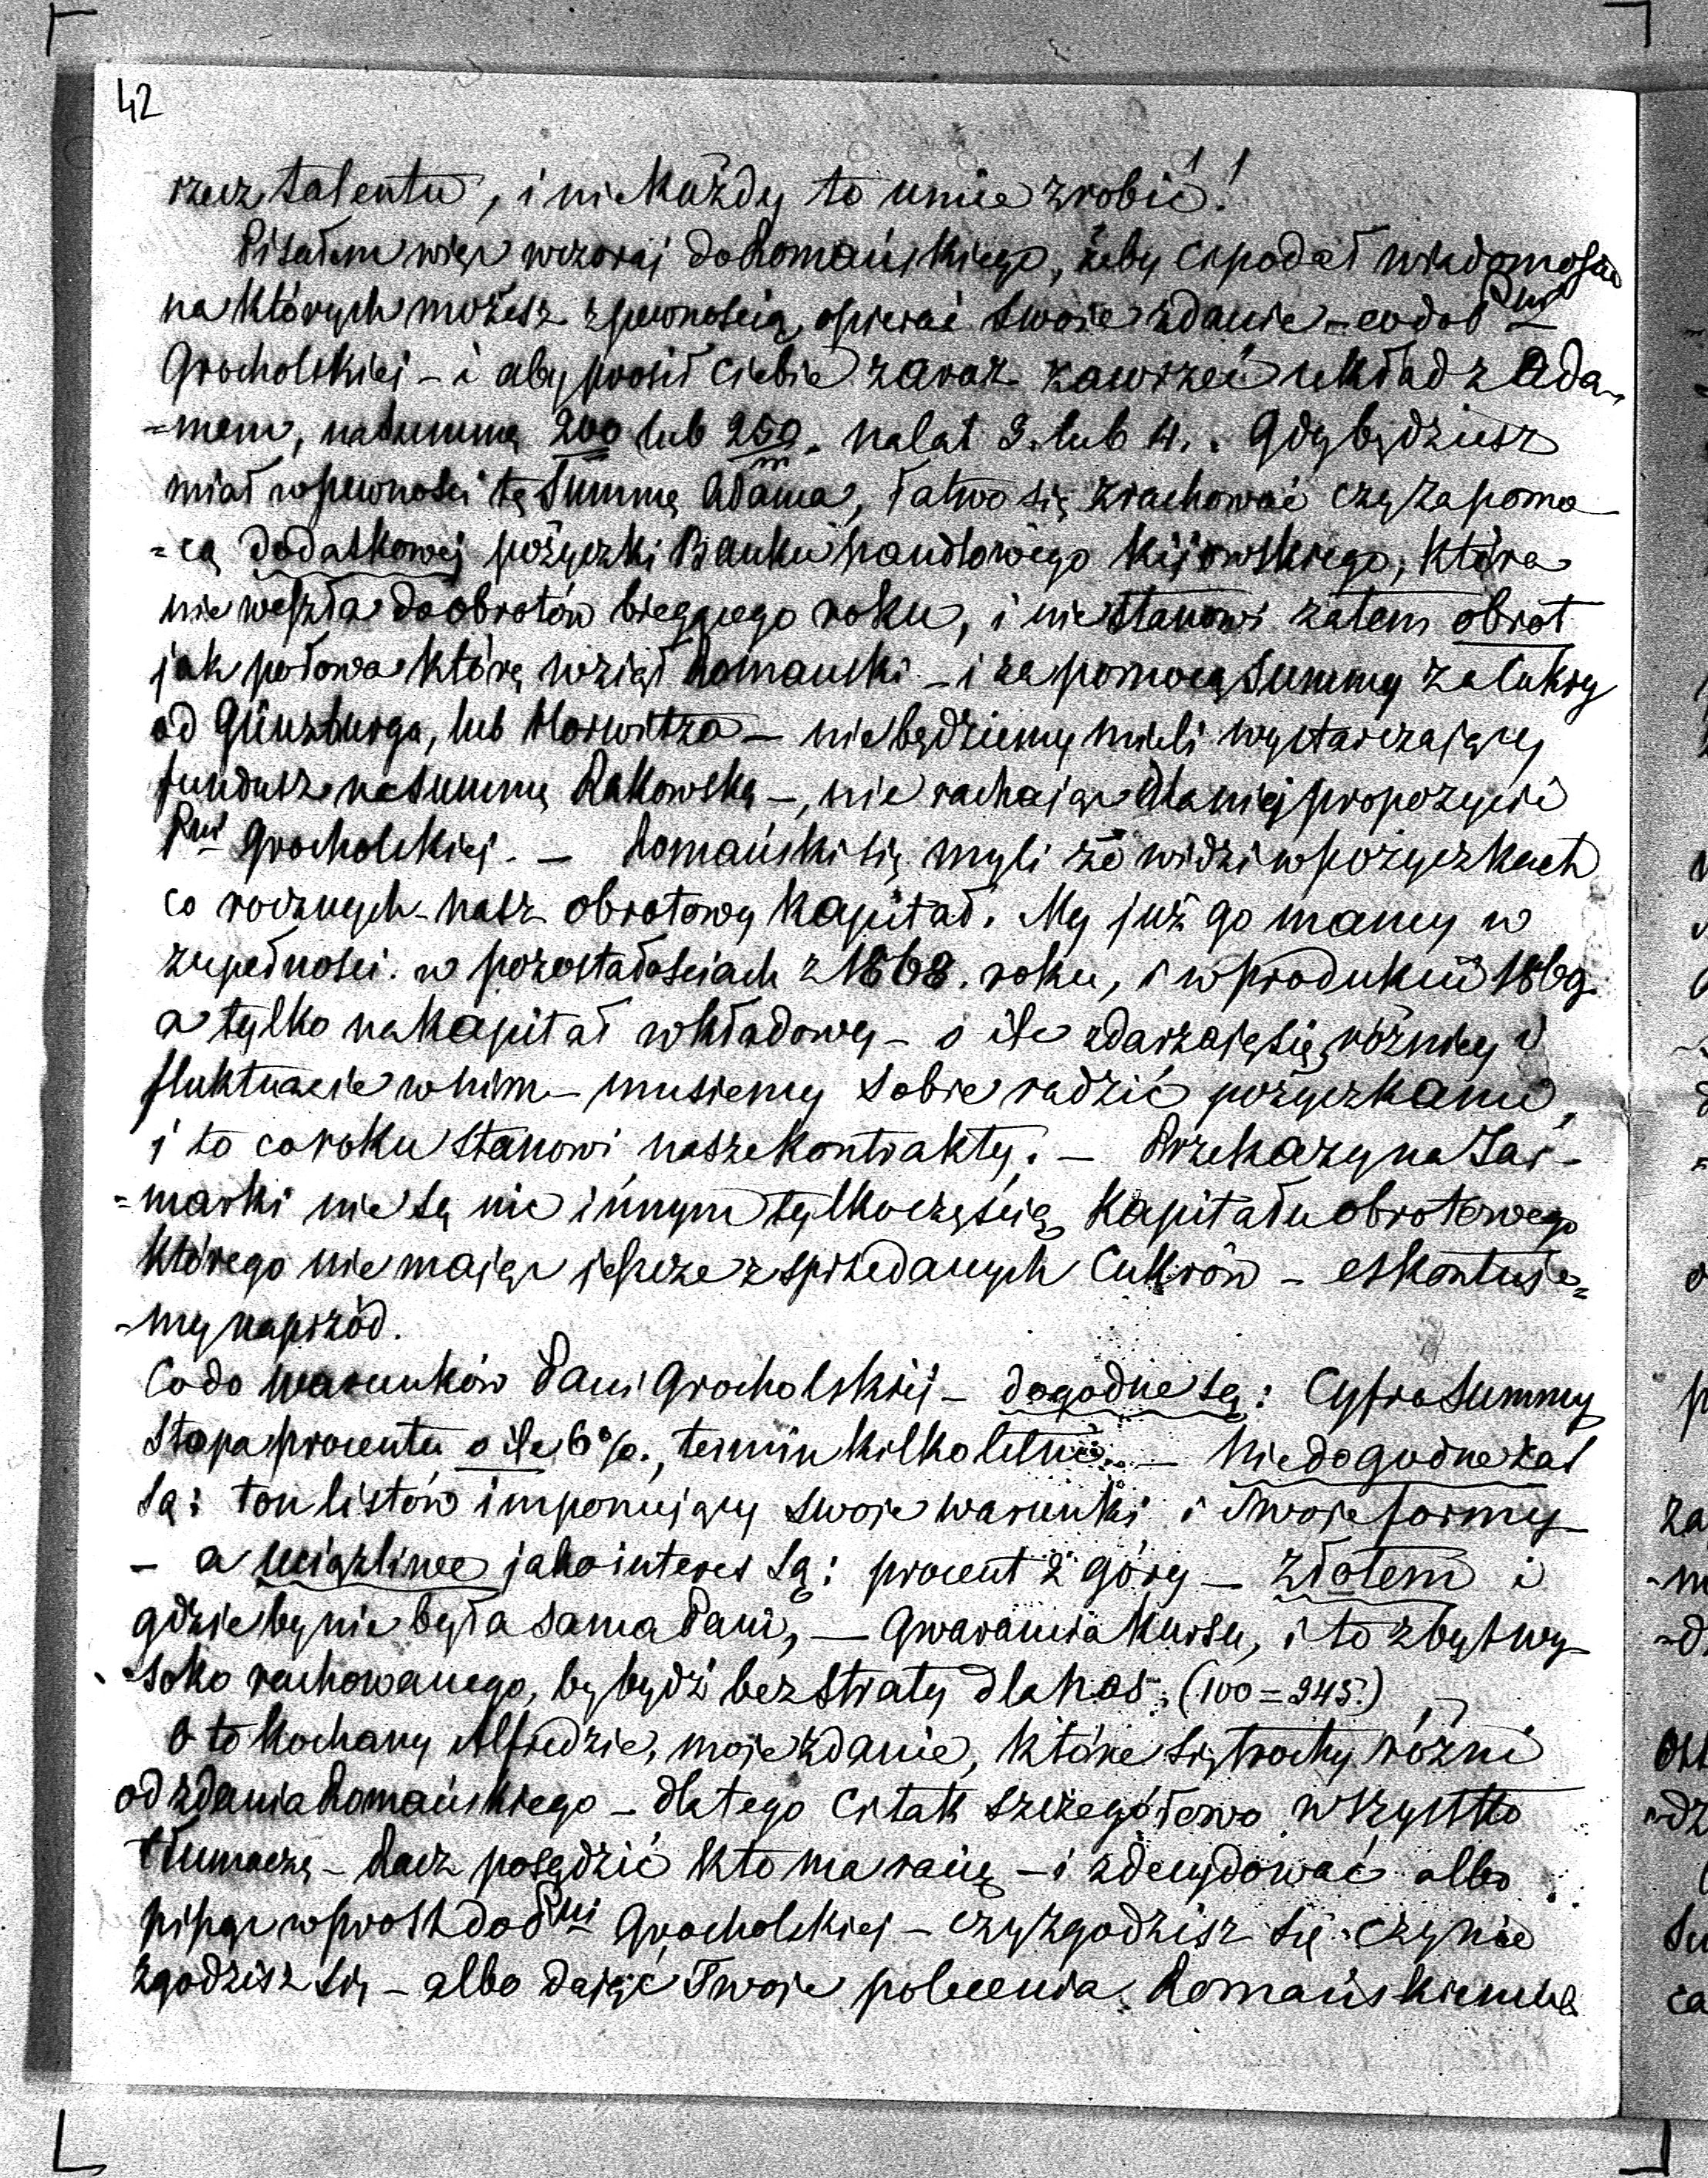 42
rzecz talentu, i nie każdy to umie zrobić!
Pisałem więc wczoraj do Romańskiego, żeby Ci podał wiadomości
na których możesz z pewnością opierać swoie zdanie – co do Pni
Grocholskiej – i aby prosił Ciebie zaraz zawrzeć układ z Ada-
=mem, na summę 200 lub 250. na lat 3. lub 4. . Gdy będziesz
m
miał w pewności tę Summę Adama, łatwo się zrachować czy za pomo
=cą dodatkowej pożyczki Banku handlowego Kijowskiego, która
nie weszła do obrotów bieżącego roku, i nie stanowi zatem obrót
jak połowa którą wziął Romański – i za pomocą Summy za Cukry
od Günzburga, lub Horwitza – nie będziemy mieli wystarczający
fundusz na summę Rakowską –, nie rachając dla niej propozycii
Pni Grocholskiej. – Romański się myli że widzi w pożyczkach
co rocznych – nasz obrotowy Kapitał. My już go mamy w
zupełności w pozostałościach z 1868. roku, i w produkcii 1869.
a tylko na Kapitał wkładowy – o ile zdarzają się różnicy i
fluktuacie w nim – musiemy sobie radzić pożyczkami,
i to co roku stanowi nasze kontrakty. – Przekazy na Jar-
=marki nie są nic innym tylko częścią Kapitału obrotowego
którego nie mając jeszcze z sprzedanych Cukrów – eskontuje=
-my naprzód.
Co do warunków Pani Grocholskiej – dogodne są: Cyfra Summy
Stopa procentu o ile 6%., termin kilkoletni. – Niedogodne zaś
są: ton listów imponujący swoje warunki i swoje formy
– a uciążliwe jako interes są: procent z góry – złotem i
gdzieby nie była sama Pani, – Gwarancia Kursu, i to zbyt wy-
-soko rachowanego, by bydź bez straty dla nas, (100=345.)
Oto Kochany Alfredzie, moje zdanie, które się trochy różni
od zdania Romańskiego – dla tego Ci tak szczegółowo wszystko
tłumaczę – Racz posądzić kto ma racię – i zdecydować albo
pisząc wprost do Pni Grocholskiej – czy zgodzisz się czy nie
zgodzisz się – albo dając Twoje polecenia Romańskiemu